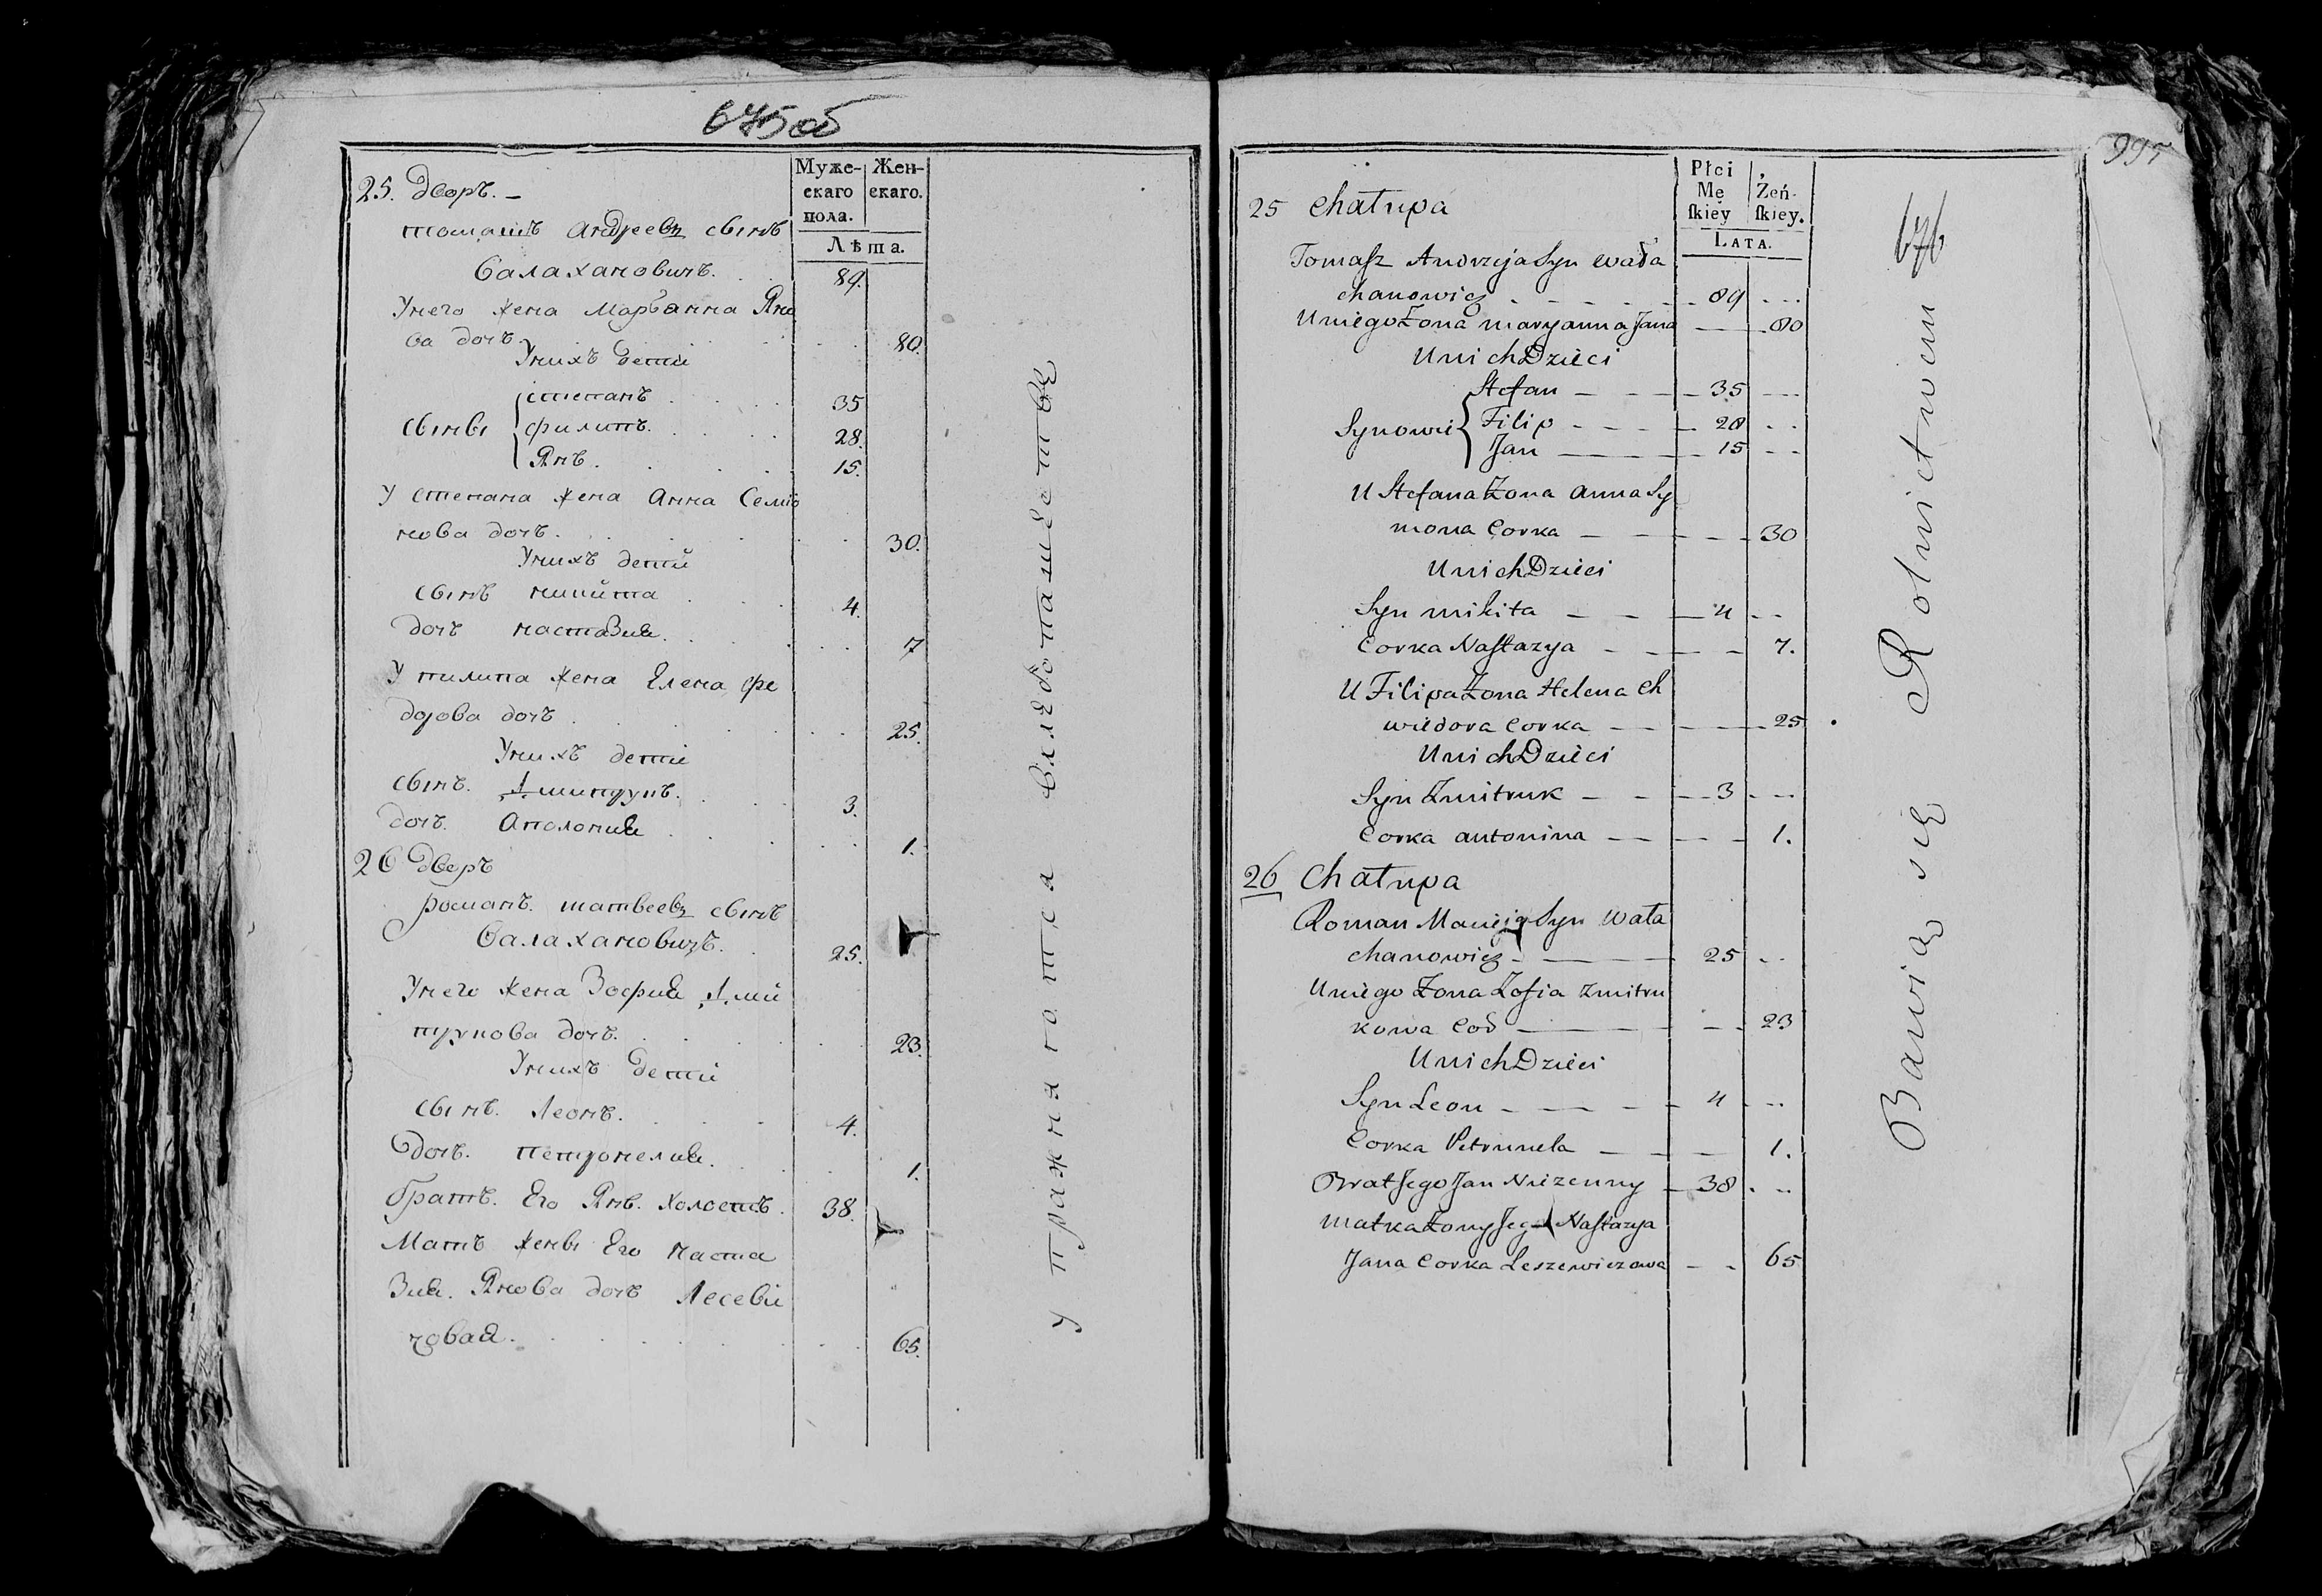 675об
Муже-
скаго
пола.
Жен-
скаго.
Лѣта.
25. Дворъ. –
томашъ Андреевъ сынъ
Валахановичъ. 89.
Унего жена Марьянна Яно
ва дочь. 80.
Унихъ дети
степанъ 35
сыны филипъ. 28.
Янъ. 15.
У степана жена Анна Семіо
нова дочь. 30.
Унихъ дети
сынъ микита 4.
дочь настазия. 7
У пилипа жена Елена фе
дорова дочь 25.
Унихъ дети
сынъ. Дмитрукъ. 3.
дочь. Аполония 1.
26 Дворъ
романъ. матвеевъ сынъ
Валахановичъ. 25.
Унего жена Зофия Дми
трукова дочь. 23.
Унихъ дети
сынъ. Леонъ. 4.
дочь. петронелия. 1.
братъ. Его Янъ. холостъ. 38.
Мать жены Его наста
зия. Янова дочь Лесеви
човая. 65.
упражняются вхлебопашестве
995
676
Płci
Mę
ſkiéy
Żeń-
ſkiey.
LATA.
25 Chałupa
Tomaſz Andrzeja Syn Wała
chanowicz 89
Uniego Żona Maryanna Jana 80
Unich Dzieci
Stefan 35
Synowie Filip 28
Jan 15
U Stefana Żona Anna Sy
mona Corka 30
Unich Dzieci
Syn Mikita 4
Corka Naſtazya 7.
U Filipa Żona Helena Ch
wiedora Corka 25
Unich Dzieci
Syn Zmitruk 3
Corka Antonina 1.
26 Chałupa
Roman Macieja Syn Wała
chanowicz 25
Uniego Żona Zofia Zmitru
kowa Cod 23
Unich Dzieci
Syn Leon 4
Corka Petrunela 1.
Brat Jego Jan Nieżenny 38
Matka Żony Jego Naſtazya
Jana Corka Leszewiczowa 65
Bawią się Rolnictwem